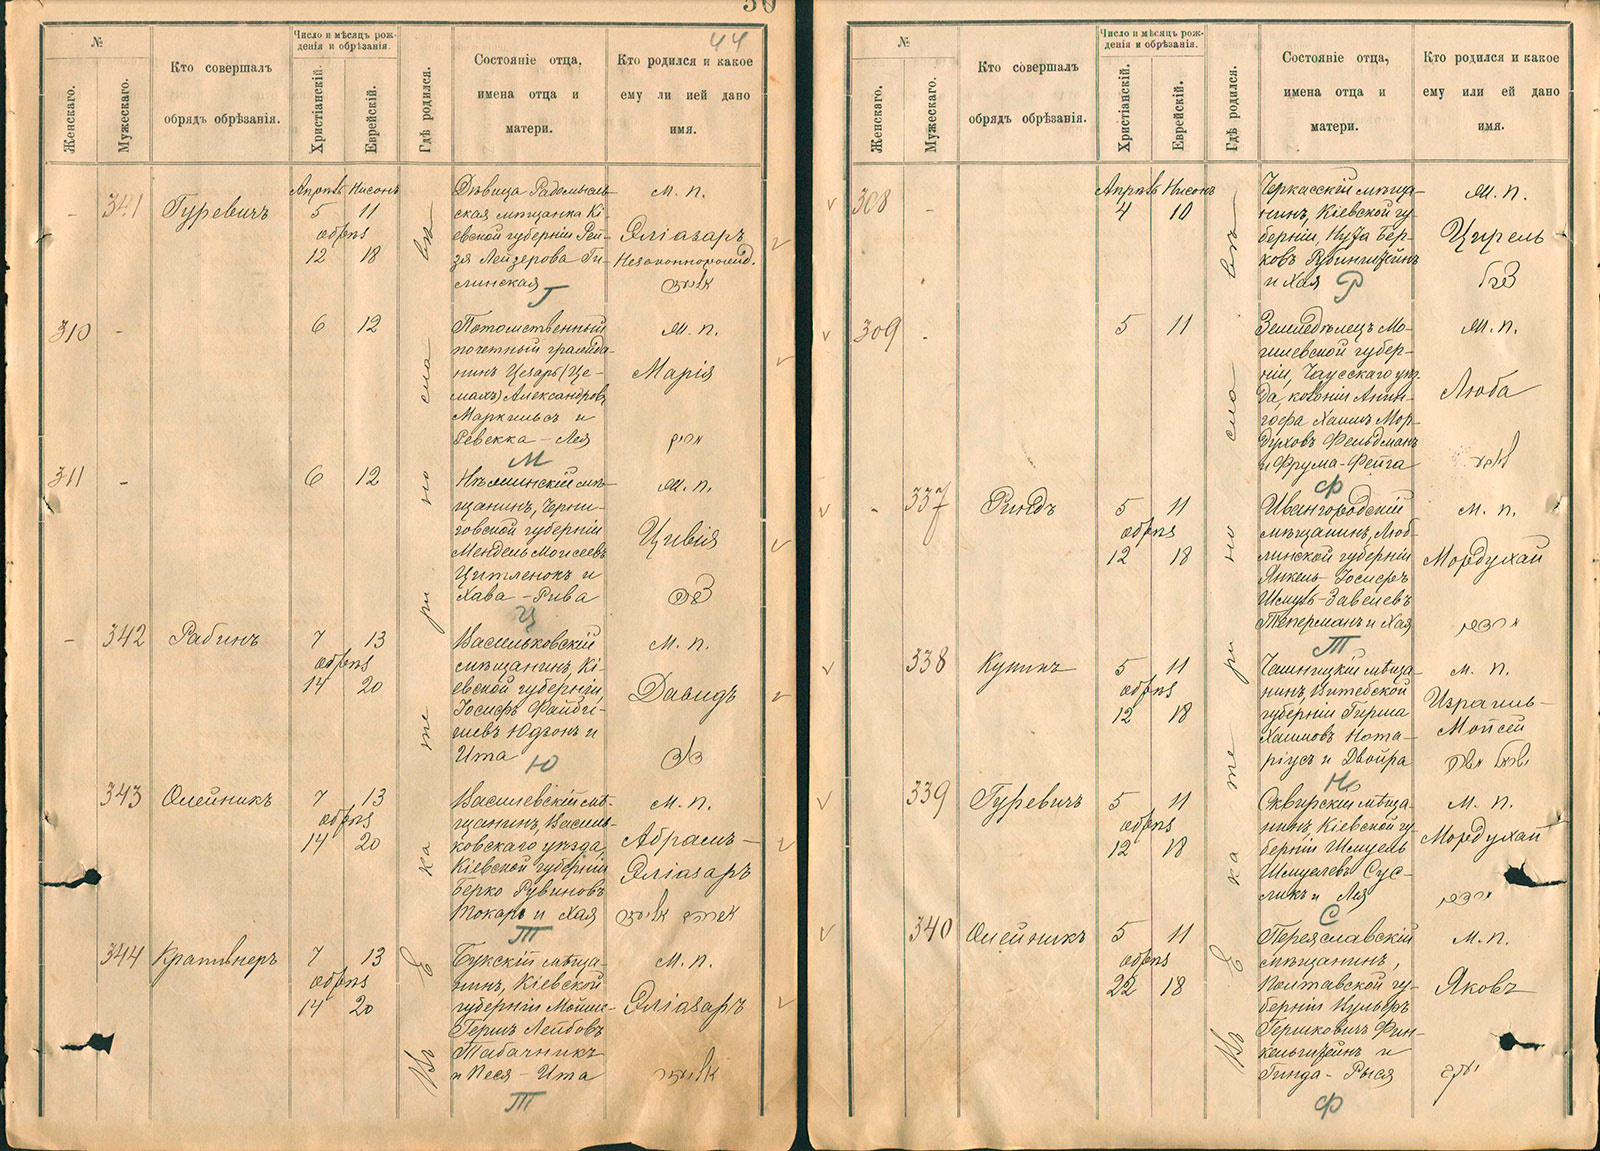 30
44
№
Женскаго.
Мужескаго.
Кто совершалъ
обрядъ обрѣзанія.
Число и мѣсяцъ рож-
денія и обрѣзанія.
Христіанскій.
Еврейскій.
Гдѣ родился.
Состояніе отца,
имена отца и
матери.
Кто родился и какое
ему ли ией дано
имя.
Въ Екатеринославѣ
-
341
Гуревичъ
Апрѣль Нисонъ
5 11
обрѣз
12 18
Дѣвица Радомысль-
ская мѣщанка Кі-
евской губерніи Рей-
зя Лейзерова Ги-
слинская
Г
м. п.
Эліазаръ
Незаконнорожд.
310
-
6 12
Потомственный
почетный гражда-
нинъ Цезарь (Це-
махъ) Александровъ
Маркильсъ и
Ревекка - Лея
М
м. п.
Марія
311
-
6 12
мѣ-
щанинъ, Черни-
говской губерніи
Мендель Моисеевъ
Цитленокъ и
Хава - Рива
Ц
м. п.
Цивія
-
342
Рабинъ
7 13
обрѣз
14 20
Васильковскій
мѣщанинъ, Кі-
евской губерніи,
Іосифъ Файби-
шевъ Юдзонъ и
Ита
Ю
м. п.
Давидъ
דוד
343
Олейникъ
7 13
обрѣз
14 20
Василевскій мѣ-
щанинъ, Василь-
ковскаго уѣзда,
Кіевской губерніи
Берко Рувиновъ
Токарь и Хая
Т
м. п.
Абрамъ-
Эліазаръ
344
Крапивнеръ
7 13
обрѣз
14 20
Букскій мѣща-
нинъ, Кіевской
губерніи Мойше-
Гершъ Лейбовъ
Табачникъ
и Песя - Ита
Т
м. п.
Эліазаръ
№
Женскаго.
Мужескаго.
Кто совершалъ
обрядъ обрѣзанія.
Число и мѣсяцъ рож-
денія и обрѣзанія.
Христіанскій.
Еврейскій.
Гдѣ родился.
Состояніе отца,
имена отца и
матери.
Кто родился и какое
ему или ей дано
имя.
Въ Екатеринославѣ
308
-
Апрѣль Нисонъ
4 10
Черкасскій мѣща-
нинъ, Кіевской гу-
берніи, Бер-
ковъ Рувинштейнъ
и Хая
Р
м. п.
Цирель
309
-
5 11
Земледѣлецъ Мо-
гилевской губер-
ніи, Чаусскаго уѣз-
да, колоніи
Хаимъ Мор-
духовъ Фельдманъ
и Фрума-Фейга
Ф
м. п.
Люба
-
337
Риндъ
5 11
обрѣз
12 18
Ивангородскій
мѣщанинъ, Люб-
линской губерніи
Янкель-Іосифъ
Шмуль-Завелевъ
Теперманъ и Хая
Т
м. п.
Мордухай
338
Купинъ
5 11
обрѣз
12 18
Чашницкій мѣща-
нинъ, Витебской
губерніи Гирша
Хаимовъ Нота-
ріусъ и Двойра
Н
м. п.
Израиль-
Мойсей
339
Гуревичъ
5 11
обрѣз
12 18
Сквирскій мѣща-
нинъ, Кіевской гу-
берніи Шмуель
Шмуелевъ Сус-
ликъ и Лея
С
м. п.
Мордухай
340
Олейникъ
5 11
обрѣз
22 18
Переяславскій
мѣщанинъ,
Полтавской гу-
берніи
Гершковичъ Фин-
кельштейнъ и
Гинда - Рыся
Ф
м. п.
Яковъ